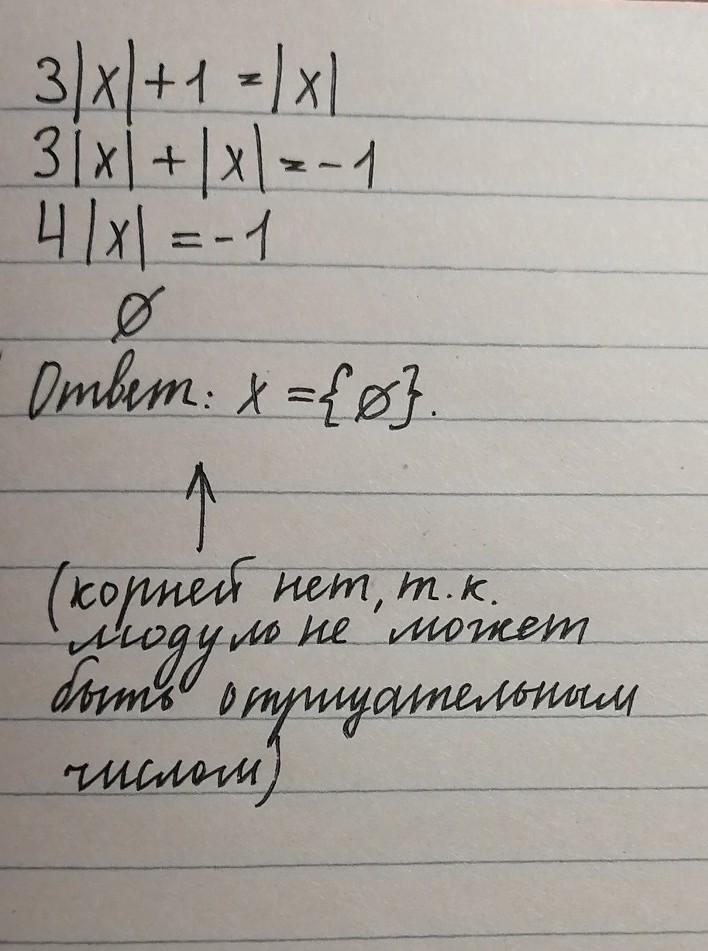 3|x|+1 = |x|
3|x| + |x| = -1
4|x| = -1
∅
Ответ: x = {∅}.
↑
(корней нет, т.к.
модуль не может
быть отрицательным
числом)